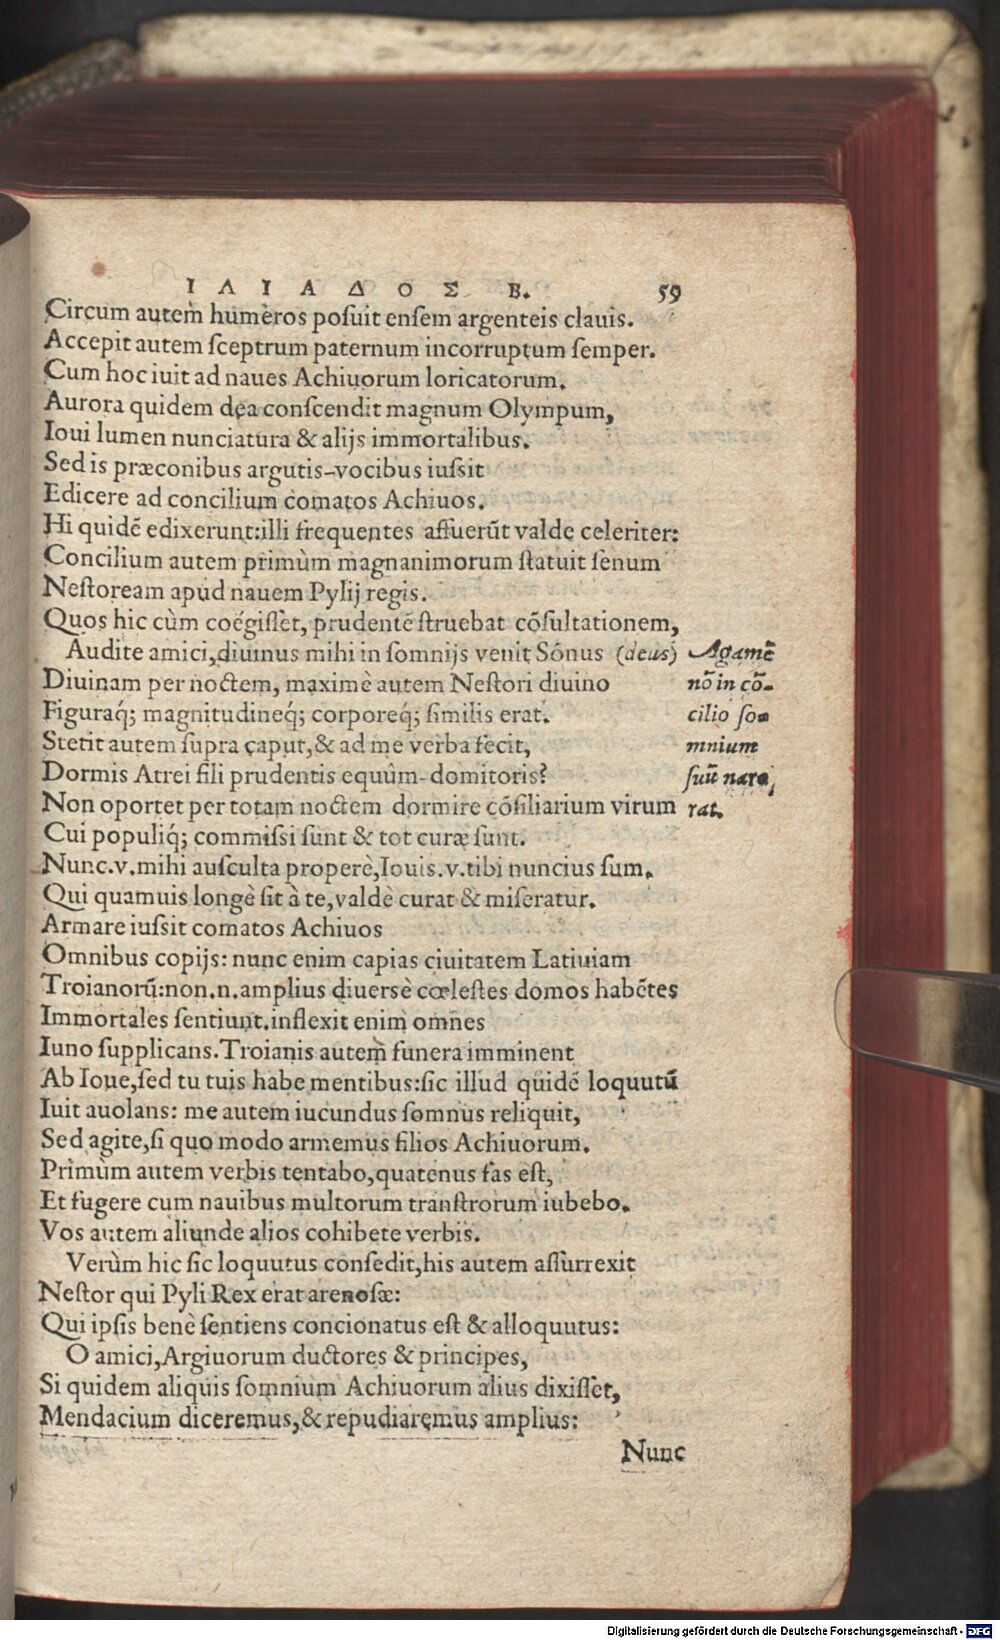 ΙΛΙΑΔΟΣ Β. 59
Circum autem humeros poſuit enſem argenteis clauis.
Accepit autem ſceptrum paternum incorruptum ſemper.
Cum hoc iuit ad naues Achiuorum loricatorum.
Aurora quidem dea conſcendit magnum Olympum,
Ioui lumen nunciatura & alijs immortalibus.
Sed is præconibus argutis-vocibus iuſsit
Edicere ad concilium comatos Achiuos.
Hi quidẽ edixerunt:illi frequentes affuerũt valde celeriter:
Concilium autem primùm magnanimorum ſtatuit ſenum
Neſtoream apud nauem Pylij regis.
Quos hic cùm coégiſſet, prudentẽ ſtruebat cõſultationem,
Audite amici,diuinus mihi in ſomnijs venit Sónus (deus)
Diuinam per noctem, maximè autem Neſtori diuino
Figuraq́; magnitudineq́; corporeq́; ſimilis erat.
Stetit autem ſupra caput,& ad me verba fecit,
Dormis Atrei fili prudentis equûm-domitoris?
Non oportet per totam noctem dormire cõſiliarium virum
Cui populiq́; commiſsi ſunt & tot curæ ſunt.
Nunc.v.mihi auſculta properè,Iouis.v.tibi nuncius ſum.
Qui quamuis longè ſit à te,valdè curat & miſeratur.
Armare iuſsit comatos Achiuos
Omnibus copijs: nunc enim capias ciuitatem Latiuiam
Troianorũ:non.n.amplius diuersè cœleſtes domos habẽtes
Immortales ſentiunt.inflexit enim omnes
Iuno ſupplicans.Troianis autem funera imminent
Ab Ioue,ſed tu tuis habe mentibus:ſic illud quidẽ loquutũ
Iuit auolans: me autem iucundus ſomnus reliquit,
Sed agite,ſi quo modo armemus filios Achiuorum.
Primùm autem verbis tentabo,quatenus fas eſt,
Et fugere cum nauibus multorum tranſtrorum iubebo.
Vos autem aliunde alios cohibete verbis.
Verùm hic ſic loquutus conſedit,his autem aſſurrexit
Neſtor qui Pyli Rex erat arenoſæ:
Qui ipſis benè ſentiens concionatus eſt & alloquutus:
O amici,Argiuorum ductores & principes,
Si quidem aliquis ſomnium Achiuorum alius dixiſſet,
Mendacium diceremus,& repudiaremus amplius:
Nunc
Agamẽ
nõ in cõ-
cilio ſo-
mnium
ſuũ nara,
rat.
Digitalisierung gefördert durch die Deutsche Forschungsgemeinschaft - DFG